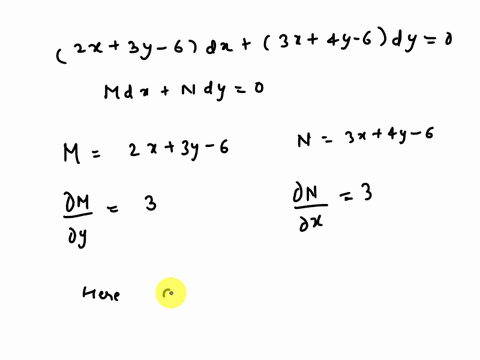 (2x+3y-6) dx + (3x+4y-6) dy = 0
Mdx + Ndy = 0
M = 2x+3y-6
N = 3x+4y-6
∂M/∂y = 3
∂N/∂x = 3
Here